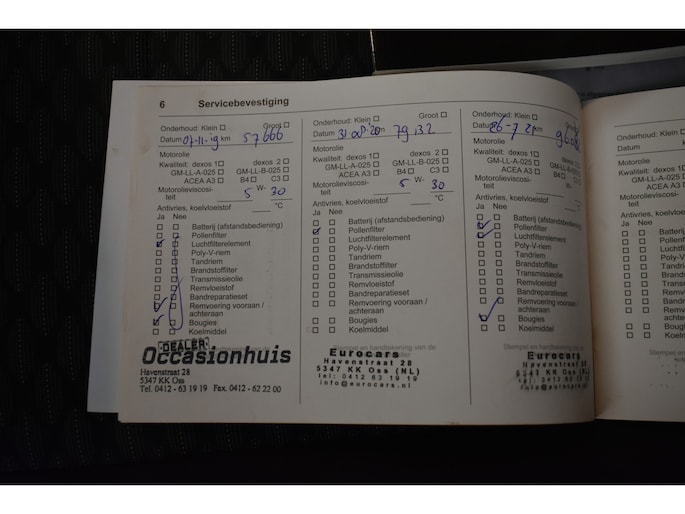 6 Servicebevestiging
Onderhoud: Klein Groot
Datum 07-11-19 km 57666
Motorolie
Kwaliteit: dexos 1 dexos 2
GM-LL-A-025 GM-LL-B-025
ACEA A3 B4 C3
Motorolieviscosi- 5 W- 30
teit
Antivries, koelvloeistof °C
Ja Nee
Batterij (afstandsbediening)
Pollenfilter
Luchtfilterelement
Poly-V-riem
Tandriem
Brandstoffilter
Transmissieolie
Remvloeistof
Bandreparatieset
Remvoering vooraan /
achteraan
Bougies
Koelmiddel
DEALER
Occasionhuis
Havenstraat 28
5347 KK Oss
Tel. 0412 - 63 19 19 Fax. 0412 - 62 22 00
Onderhoud: Klein Groot
Datum 31 08 20 km 79132
Motorolie
Kwaliteit: dexos 1 dexos 2
GM-LL-A-025 GM-LL-B-025
ACEA A3 B4 C3
Motorolieviscosi- 5 W- 30
teit
Antivries, koelvloeistof °C
Ja Nee
Batterij (afstandsbediening)
Pollenfilter
Luchtfilterelement
Poly-V-riem
Tandriem
Brandstoffilter
Transmissieolie
Remvloeistof
Bandreparatieset
Remvoering vooraan /
achteraan
Bougies
Koelmiddel
Stempel en handtekening van de
Eurocars
Havenstraat 28
5347 KK Oss (NL)
tel: 0412 63 19 19
info@eurocars.nl
Onderhoud: Klein Groot
Datum 26-7-21 km
Motorolie
Kwaliteit: dexos 1 dexos 2
GM-LL-A-025 GM-LL-B-025
ACEA A3 B4 C3
Motorolieviscosi- 5 W- 30
teit
Antivries, koelvloeistof °C
Ja Nee
Batterij (afstandsbediening)
Pollenfilter
Luchtfilterelement
Poly-V-riem
Tandriem
Brandstoffilter
Transmissieolie
Remvloeistof
Bandreparatieset
Remvoering vooraan /
achteraan
Bougies
Koelmiddel
Stempel en handtekening van de
Eurocars
Havenstraat 28
5347 KK Oss (NL)
Onderhoud: Kl
Datum
Motorolie
Kwaliteit: de
GM-LL-A
ACE
Motorolievis
teit
Antivries, koelv
Ja Nee